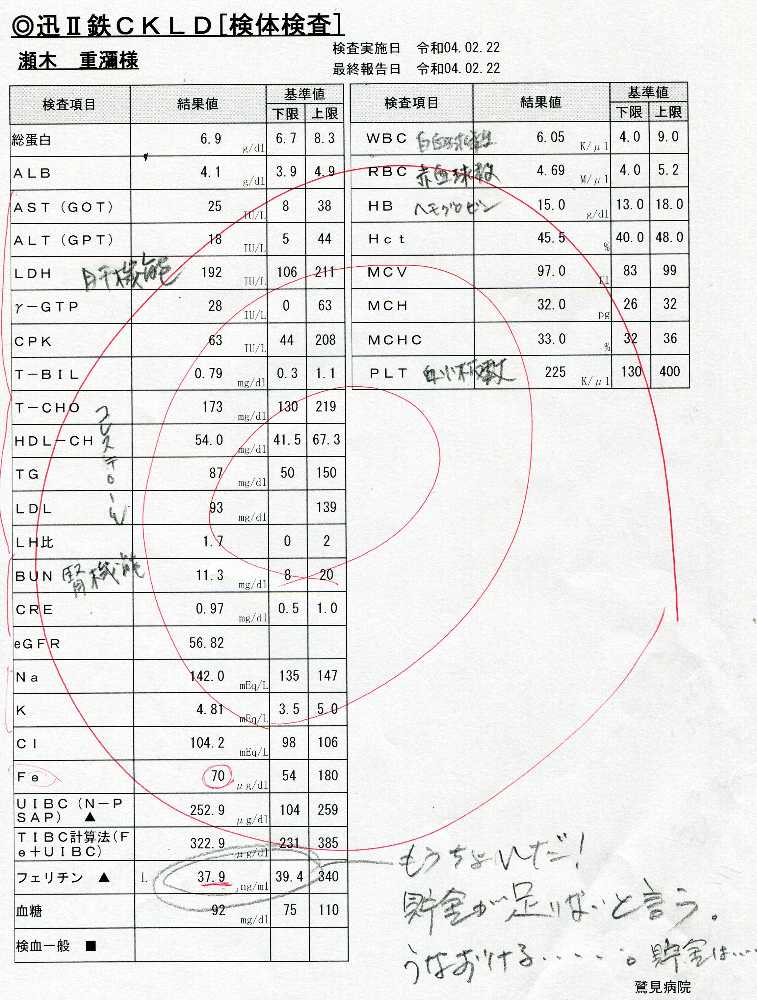 ◎迅Ⅱ鉄CKLD[検体検査]
瀬木 重彌様
検査実施日 令和04.02.22
最終報告日 令和04.02.22
検査項目 結果値 基準値
下限 上限
総蛋白 6.9 g/dl 6.7 8.3
ALB 4.1 g/dl 3.9 4.9
AST(GOT) 25 IU/L 8 38
ALT(GPT) 18 IU/L 5 44
LDH 肝機能 192 IU/L 106 211
γ-GTP 28 IU/L 0 63
CPK 63 IU/L 44 208
T-BIL 0.79 mg/dl 0.3 1.1
T-CHO 173 mg/dl 130 219
コレステロール
HDL-CH 54.0 mg/dl 41.5 67.3
TG 87 mg/dl 50 150
LDL 93 mg/dl 139
LH比 1.7 0 2
BUN 腎機能 11.3 mg/dl 8 20
CRE 0.97 mg/dl 0.5 1.0
eGFR 56.82
Na 142.0 mEq/L 135 147
K 4.81 mEq/L 3.5 5.0
Cl 104.2 mEq/L 98 106
Fe 70 μg/dl 54 180
UIBC(N-P
SAP) ▲ 252.9 μg/dl 104 259
TIBC計算法(F
e+UIBC) 322.9 μg/dl 231 385
フェリチン ▲ L 37.9 ng/ml 39.4 340
血糖 92 mg/dl 75 110
検血一般 ■
検査項目 結果値 基準値
下限 上限
WBC 白血球数 6.05 K/μl 4.0 9.0
RBC 赤血球数 4.69 M/μl 4.0 5.2
HB ヘモグロビン 15.0 g/dl 13.0 18.0
Hct 45.5 % 40.0 48.0
MCV 97.0 fl 83 99
MCH 32.0 pg 26 32
MCHC 33.0 % 32 36
PLT 血小板数 225 K/μl 130 400
もうちょいだ!
貯金が足りないと言う。
うなおける・・・・・。貯金は・・・・
鷲見病院